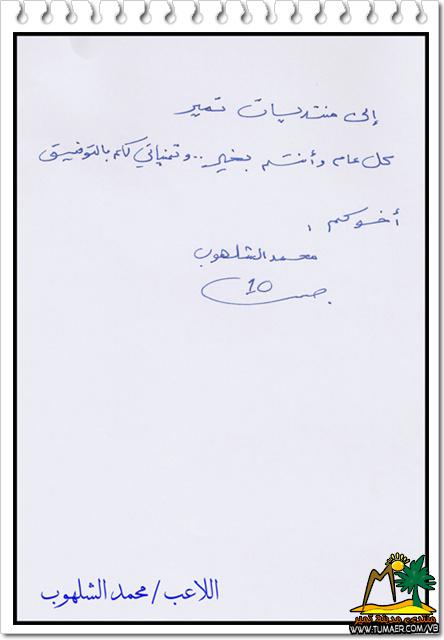 إلى منتديات تمير
كل عام وأنتم بخير .. وتمنياتي لكم بالتوفيق
أخوكم ،
محمد الشلهوب
10
اللاعب / محمد الشلهوب
منتدى مدينة تمير
WWW.TUMAER.COM/VB